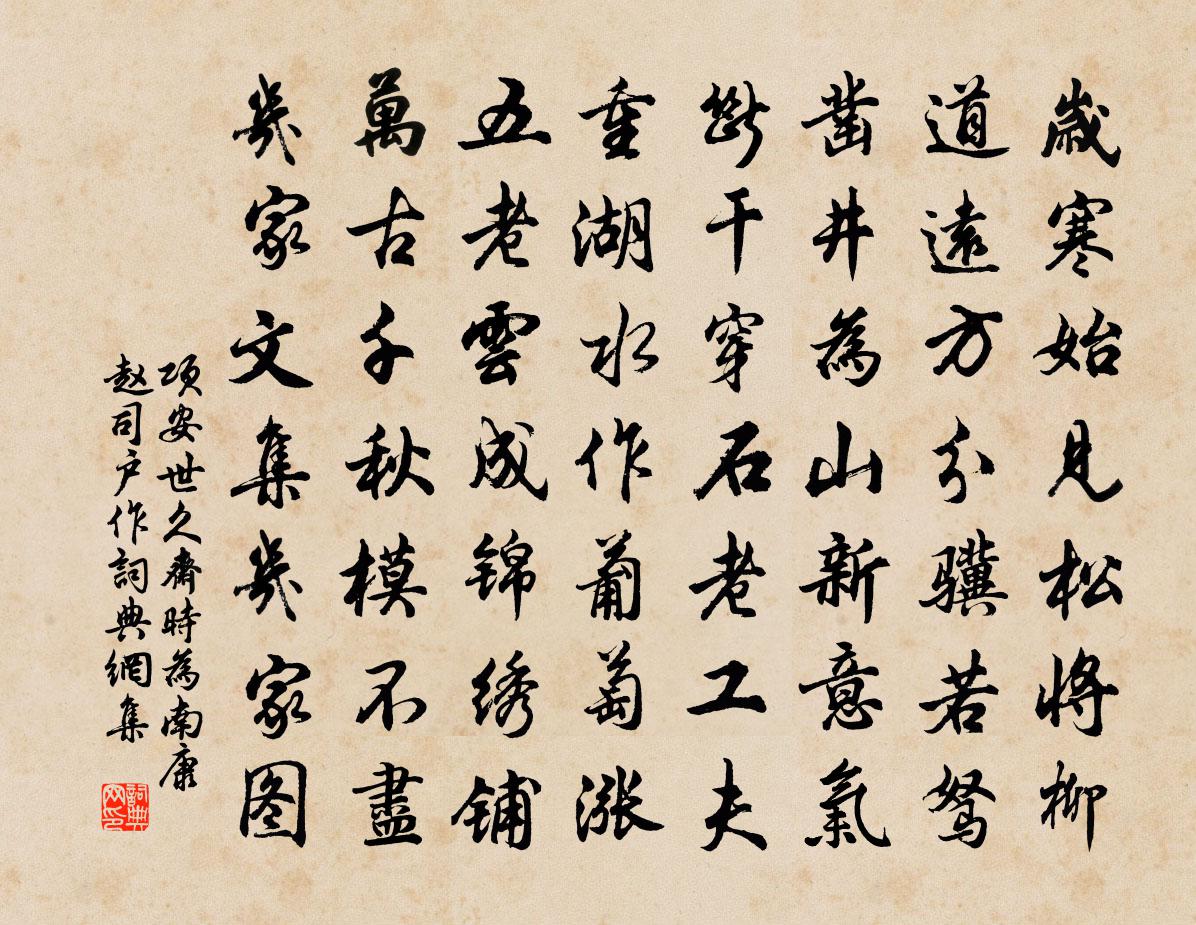 歲寒始見松將柳
道遠方分驥若駑
鑿井為山新意氣
斷干穿石老工夫
重湖水作葡萄漲
五老雲成錦绣鋪
萬古千秋模不盡
幾家文集幾家图
項安世久齋時為南康
赵司户作詞典網集
詞典
网印